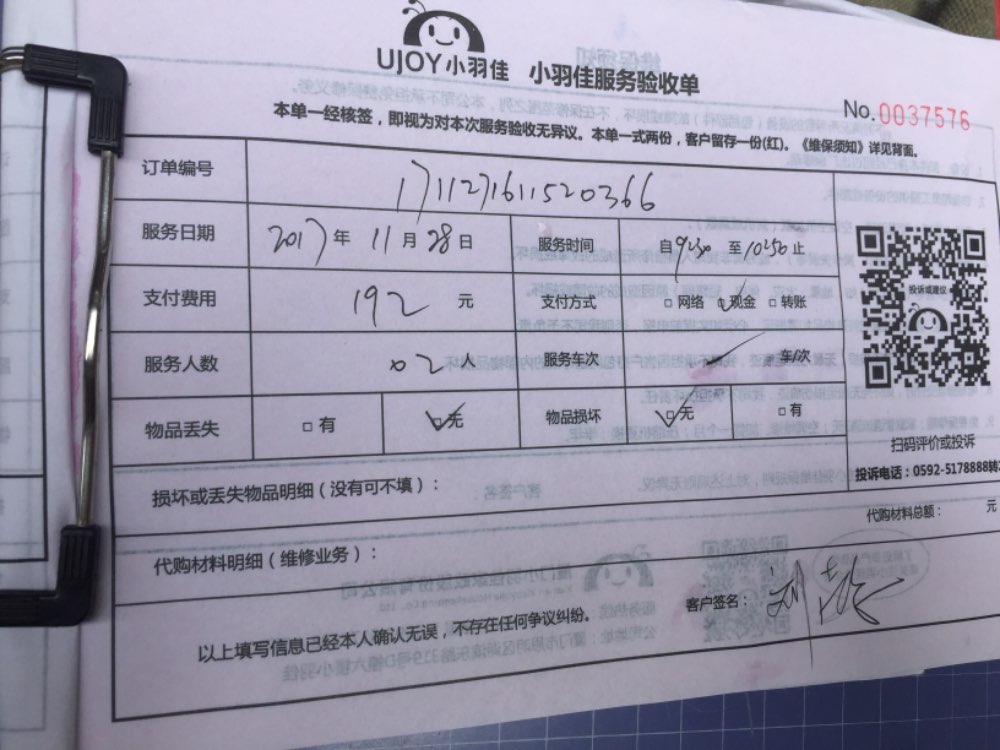 UJOY小羽佳 小羽佳服务验收单
No.0037576
本单一经核签，即视为对本次服务验收无异议。本单一式两份，客户留存一份(红)。《维保须知》详见背面。
订单编号 1711271611520366
服务日期 2017年11月28日 服务时间 自9:30至10:50止
支付费用 192元 支付方式 □网络 ☑现金 □转账
服务人数 02 服务车次 车/次
投诉或建议
物品丢失 □有 ☑无 物品损坏 ☑无 □有
扫码评价或投诉
投诉电话：0592-5178888转2
损坏或丢失物品明细（没有可不填）：
代购材料总额： 元
代购材料明细（维修业务）：
以上填写信息已经本人确认无误，不存在任何争议纠纷。
客户签名：